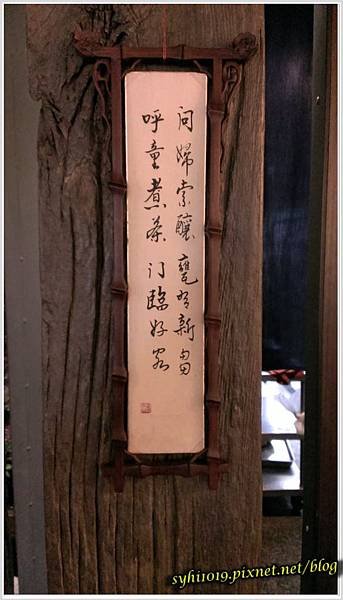 問婦索釀甕有新芻
呼童煮茶門臨好客
syhi1019.pixnet.net/blog